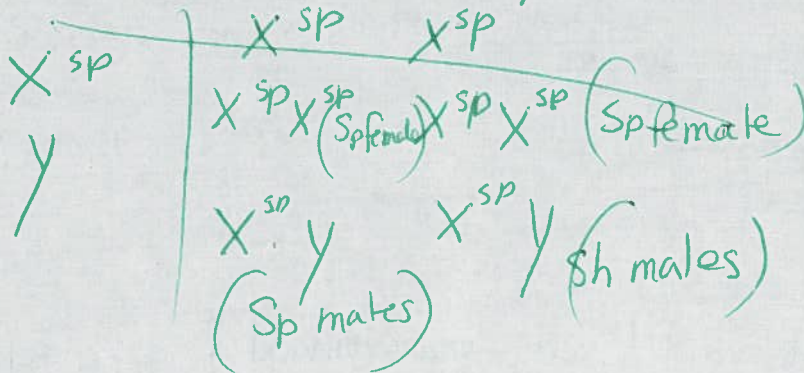 X^sp X^sp
X^sp X^sp X^sp (Sp female) X^sp X^sp (Sp female)
y X^sp y X^sp y (sh males)
(Sp males)